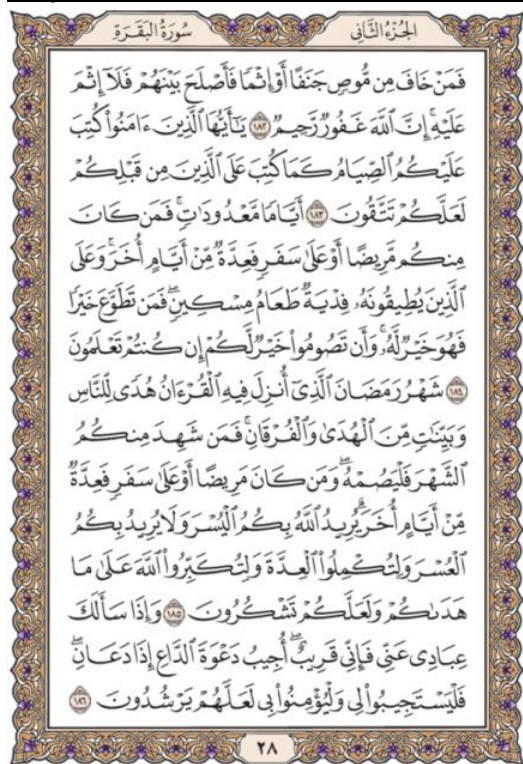 سُورَةُ البَقَرَةِ
الجُزْءُ الثَّانِي
فَمَنْ خَافَ مِن مُّوصٍ جَنَفًا أَوْ إِثْمًا فَأَصْلَحَ بَيْنَهُمْ فَلَآ إِثْمَ
عَلَيْهِۚ إِنَّ ٱللَّهَ غَفُورٌ رَّحِيمٌ ١٨٢ يَـٰٓأَيُّهَا ٱلَّذِينَ ءَامَنُوا۟ كُتِبَ
عَلَيْكُمُ ٱلصِّيَامُ كَمَا كُتِبَ عَلَى ٱلَّذِينَ مِن قَبْلِكُمْ
لَعَلَّكُمْ تَتَّقُونَ ١٨٣ أَيَّامًا مَّعْدُودَٰتٍۚ فَمَن كَانَ
مِنكُم مَّرِيضًا أَوْ عَلَىٰ سَفَرٍ فَعِدَّةٌ مِّنْ أَيَّامٍ أُخَرَۚ وَعَلَى
ٱلَّذِينَ يُطِيقُونَهُۥ فِدْيَةٌ طَعَامُ مِسْكِينٍۖ فَمَن تَطَوَّعَ خَيْرًا
فَهُوَ خَيْرٌ لَّهُۥۚ وَأَن تَصُومُوا۟ خَيْرٌ لَّكُمْ إِن كُنتُمْ تَعْلَمُونَ
١٨٤ شَهْرُ رَمَضَانَ ٱلَّذِىٓ أُنزِلَ فِيهِ ٱلْقُرْءَانُ هُدًى لِّلنَّاسِ
وَبَيِّنَـٰتٍ مِّنَ ٱلْهُدَىٰ وَٱلْفُرْقَانِۚ فَمَن شَهِدَ مِنكُمُ
ٱلشَّهْرَ فَلْيَصُمْهُۖ وَمَن كَانَ مَرِيضًا أَوْ عَلَىٰ سَفَرٍ فَعِدَّةٌ
مِّنْ أَيَّامٍ أُخَرَۗ يُرِيدُ ٱللَّهُ بِكُمُ ٱلْيُسْرَ وَلَا يُرِيدُ بِكُمُ
ٱلْعُسْرَ وَلِتُكْمِلُوا۟ ٱلْعِدَّةَ وَلِتُكَبِّرُوا۟ ٱللَّهَ عَلَىٰ مَا
هَدَىٰكُمْ وَلَعَلَّكُمْ تَشْكُرُونَ ١٨٥ وَإِذَا سَأَلَكَ
عِبَادِى عَنِّى فَإِنِّى قَرِيبٌۖ أُجِيبُ دَعْوَةَ ٱلدَّاعِ إِذَا دَعَانِۖ
فَلْيَسْتَجِيبُوا۟ لِى وَلْيُؤْمِنُوا۟ بِى لَعَلَّهُمْ يَرْشُدُونَ ١٨٦
٢٨